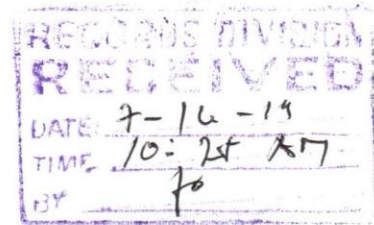 RECORDS DIVISION
RECEIVED
DATE: 7-16-19
TIME 10:25 AM
BY